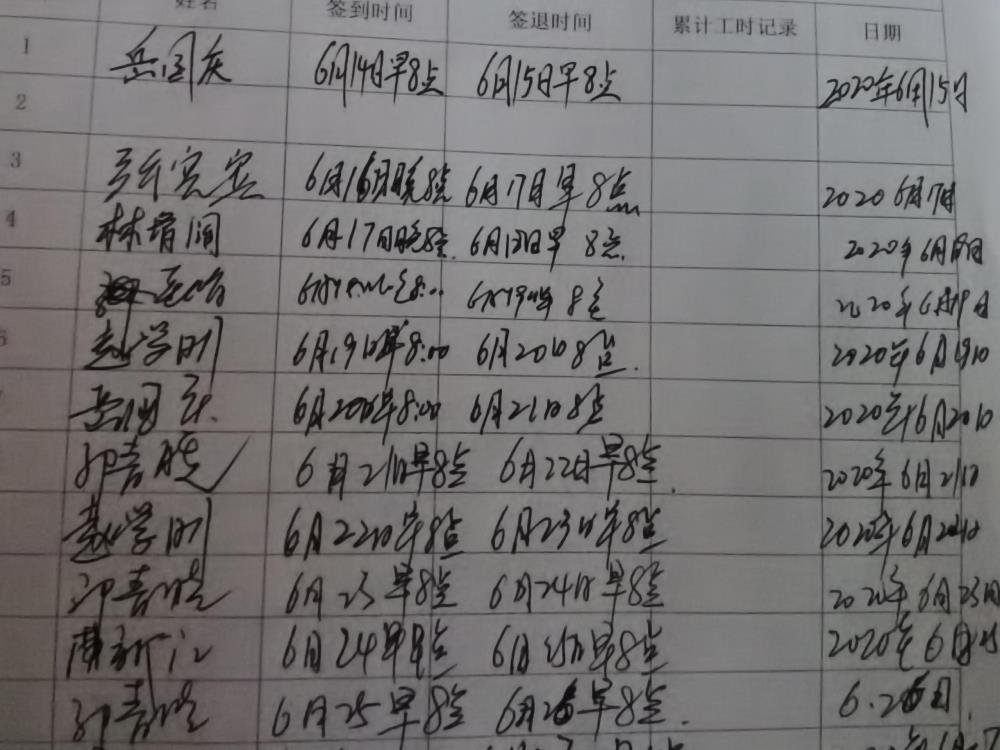 姓名 签到时间 签退时间 累计工时记录 日期
1 岳国庆 6月14日早8点 6月15日早8点 2020年6月15日
2
3 6月16日晚8点 6月17日早8点 2020 6月17日
4 林增润 6月17日晚8点. 6月18日早 8点. 2020年6月18日
5 8点 2020年6月19日
赵学明 6月19日早8:00 6月20日8点. 2020年6月19日
岳国庆. 6月20日早8:00 6月21日8点 2020年6月20日
邓春晓 6月21日早8点 6月22日早8点. 2020年6月21日
赵学明 6月22日早8点 6月23日早8点 2020年6月
邓春晓 6月23早8点 6月24日早8点 2020年6月23日
6月24早8点 6月25日早8点 2020年6月
邓春晓 6月25早8点 6月26早8点. 6.26日.